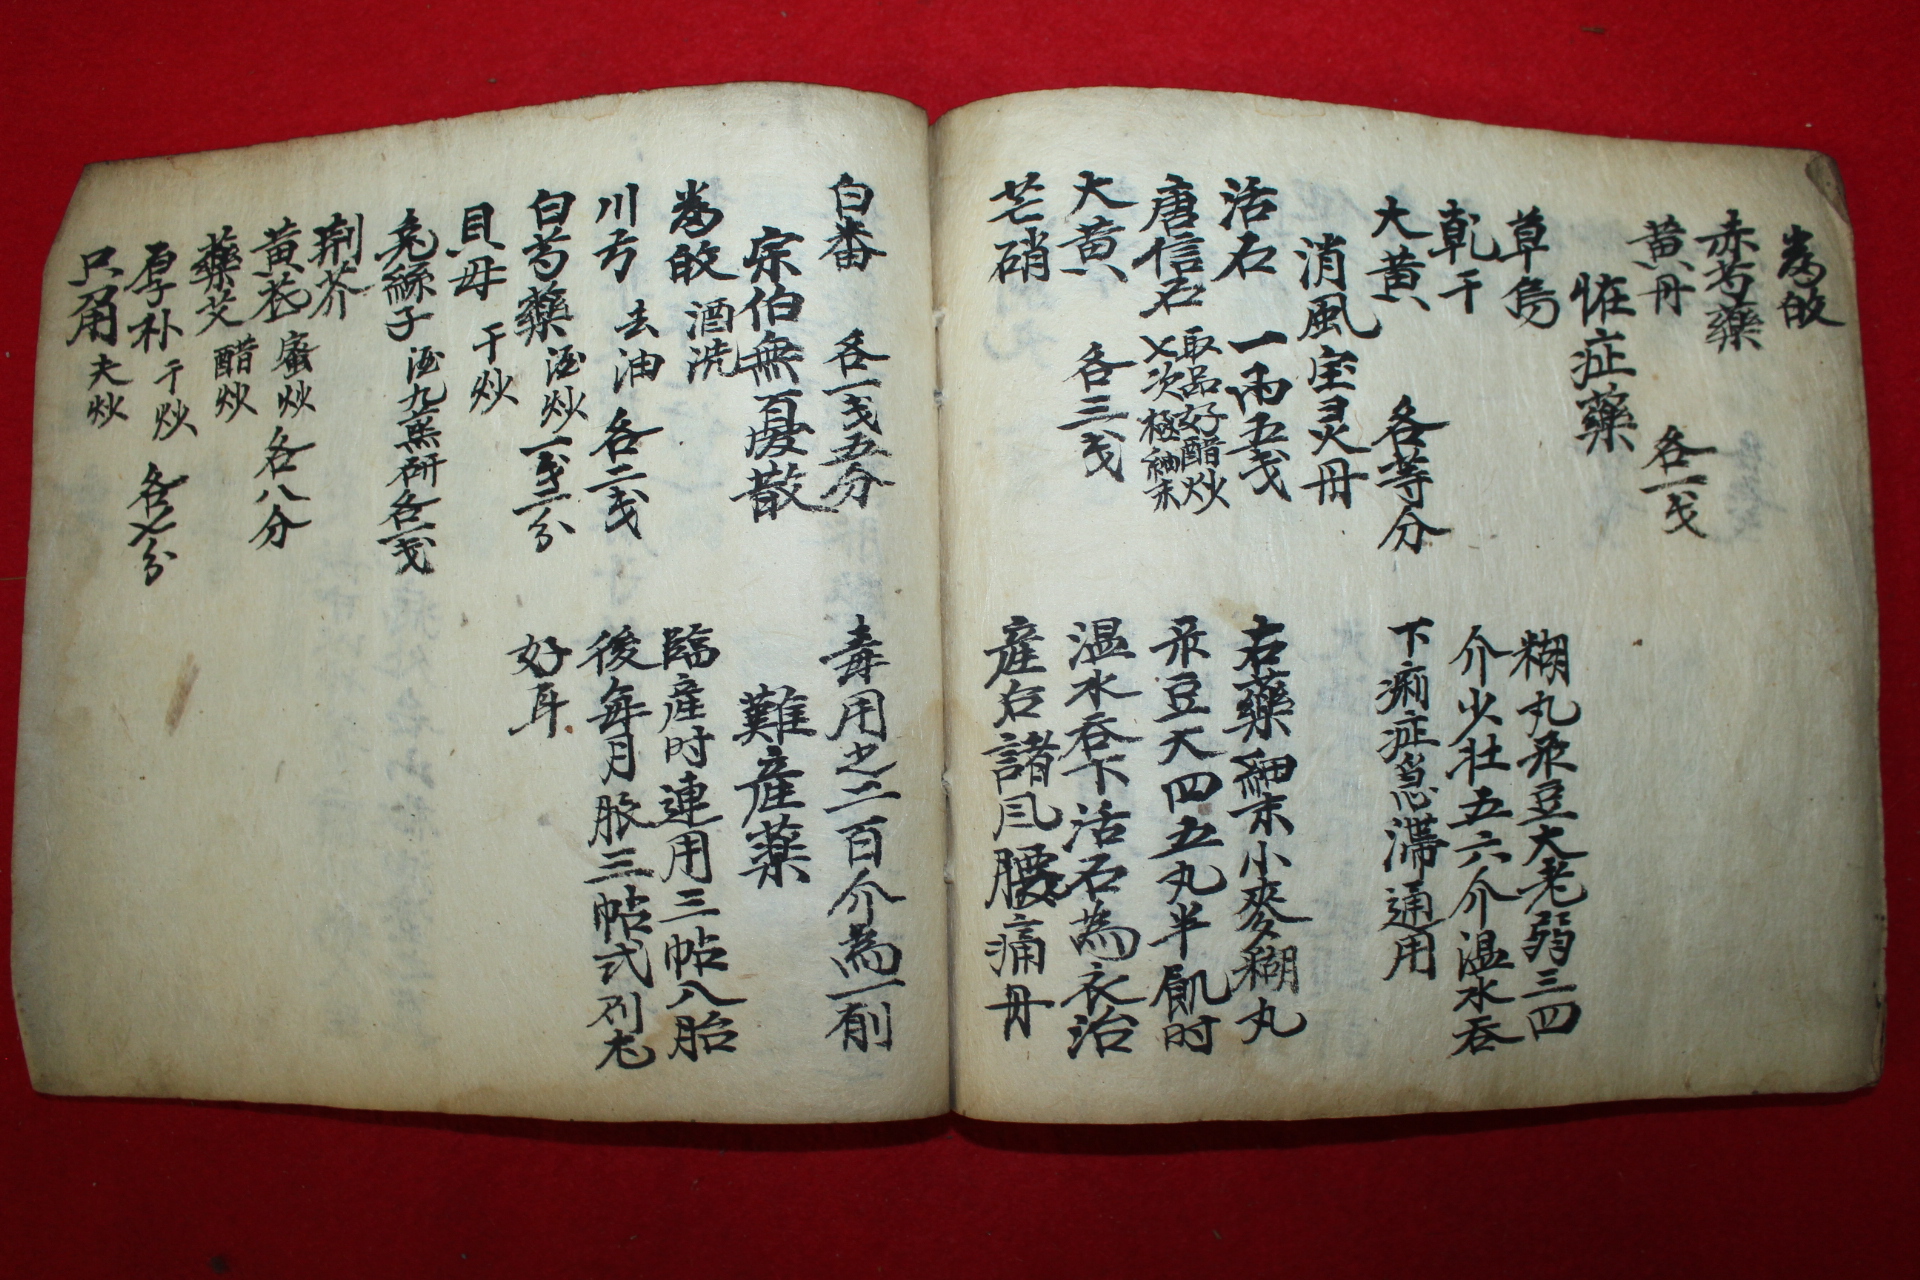 當皈
赤芍藥
黃丹 各一戔
恠症藥
草烏
乾干
大黃 各等分
糊丸彔豆大老弱三四
介少壯五六介温水吞
下痢症急滯通用
消風宝灵丹
活石 一兩五戔
唐信石 取品好醋炒七次極細末
大黃 各三戔
芒硝
右藥細末小麥糊丸
彔豆大四五丸半飢时
温水吞下活石為衣治
産后諸凨腰痛丹
白番 各一戔五分
毒用之二百介為一剤
宗伯無憂散
難産藥
當皈 酒洗
川芎 去油 各二戔
白芍藥 酒炒 一戔二分
貝母 干炒
兔絲子 酒九蒸研各一戔
荊芥
黃芪 蜜炒 各八分
藥艾 醋炒
厚朴 干炒 各七分
只角 夫炒
臨産时連用三帖八胎
後每月服三帖式
好耳